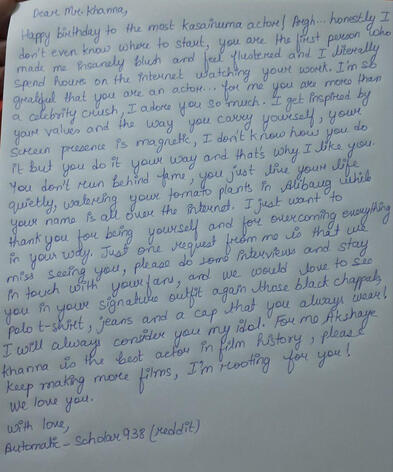 Dear Mr. Khanna,
Happy birthday to the most kasainuma actor! Argh... honestly I
don't even know where to start, you are the first person who
made me insanely blush and feel flustered and I literally
spend hours on the internet watching your work. I'm so
grateful that you are an actor... for me you are more than
a celebrity crush, I adore you so much. I get inspired by
your values and the way you carry yourself, your
screen presence is magnetic, I don't know how you do
it but you do it your way and that's why I like you.
You don't run behind fame, you just live your life
quietly, watering your tomato plants in Alibaug while
your name is all over the internet. I just want to
thank you for being yourself and for overcoming everything
in your way. Just one request from me is that we
miss seeing you, please do some interviews and stay
in touch with your fans, and we would love to see
you in your signature outfit again those black chappals,
polo t-shirt, jeans and a cap that you always wear!
I will always consider you my idol. For me Akshaye
Khanna is the best actor in film history, please
keep making more films, I'm rooting for you!
We love you.
With love,
Automatic-Scholar938 (reddit)